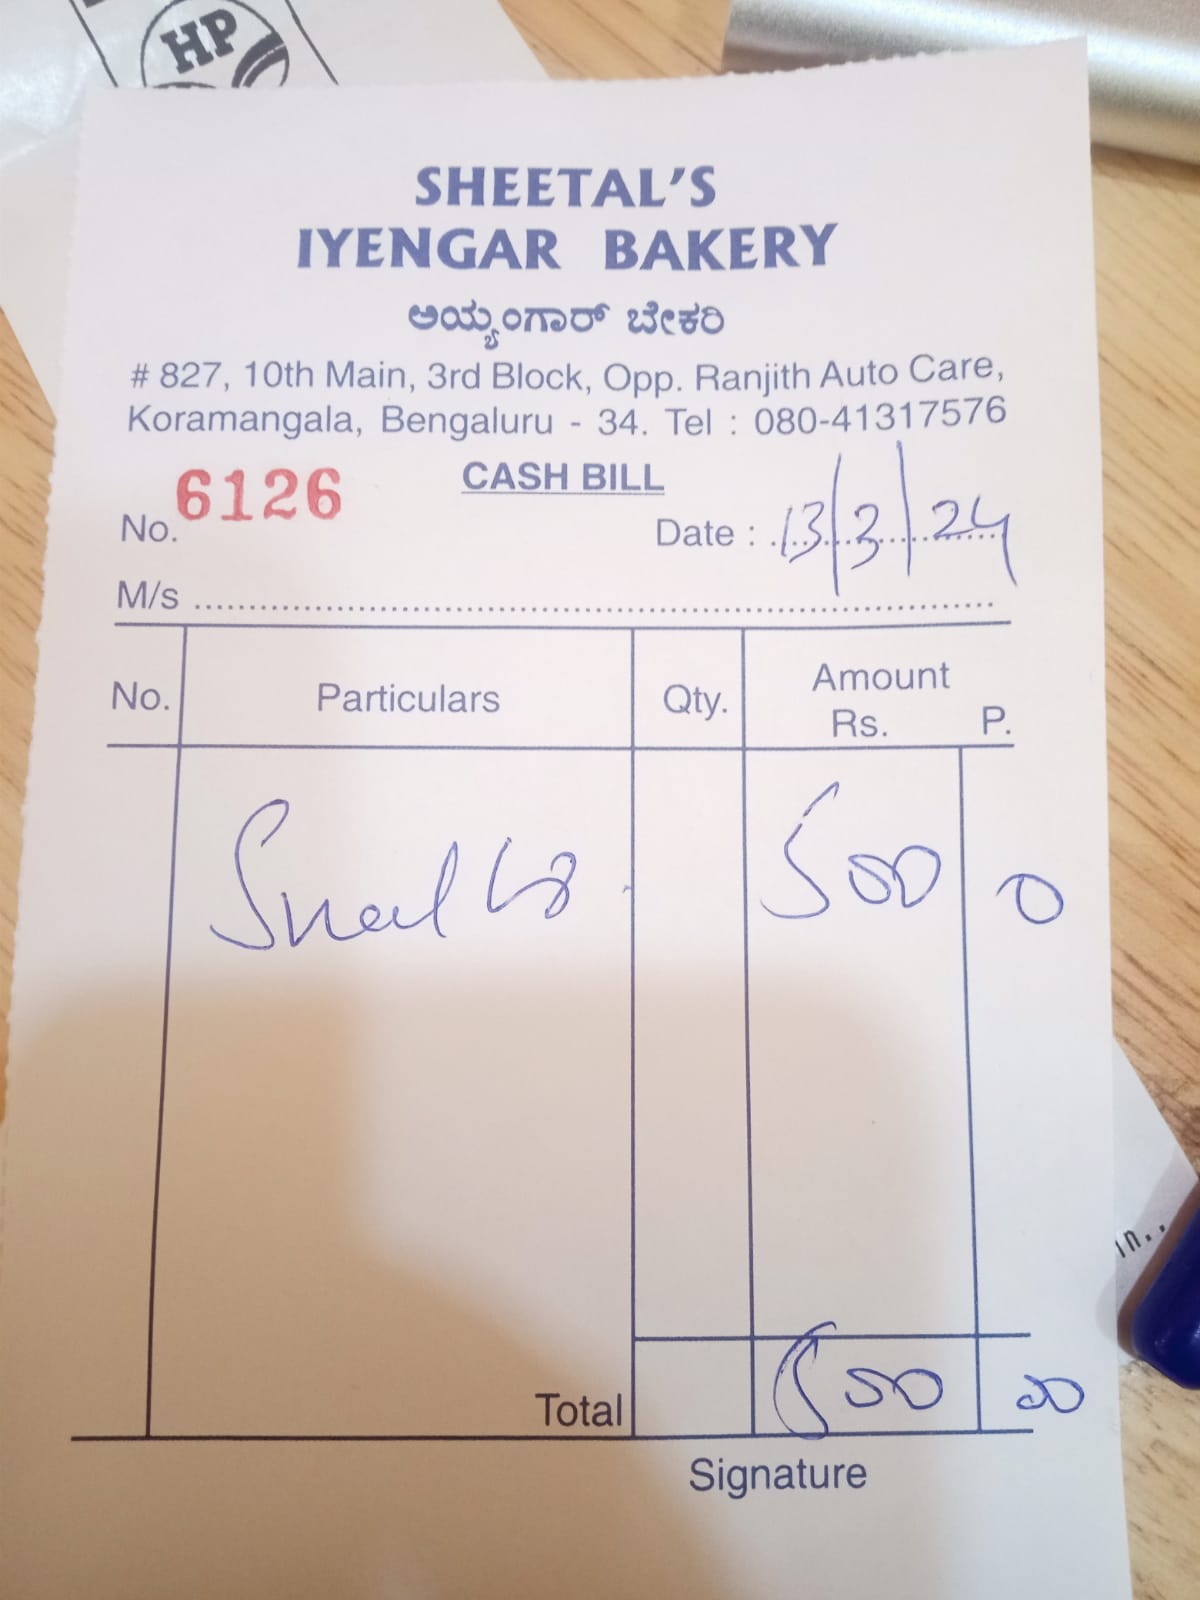 HP
SHEETAL'S
IYENGAR BAKERY
ಅಯ್ಯಂಗಾರ್ ಬೇಕರಿ
# 827, 10th Main, 3rd Block, Opp. Ranjith Auto Care,
Koramangala, Bengaluru - 34. Tel : 080-41317576
No. 6126 CASH BILL Date : 13/3/24
M/s
No. Particulars Qty. Amount Rs. P.
500 0
Total 500 00
Signature
in..